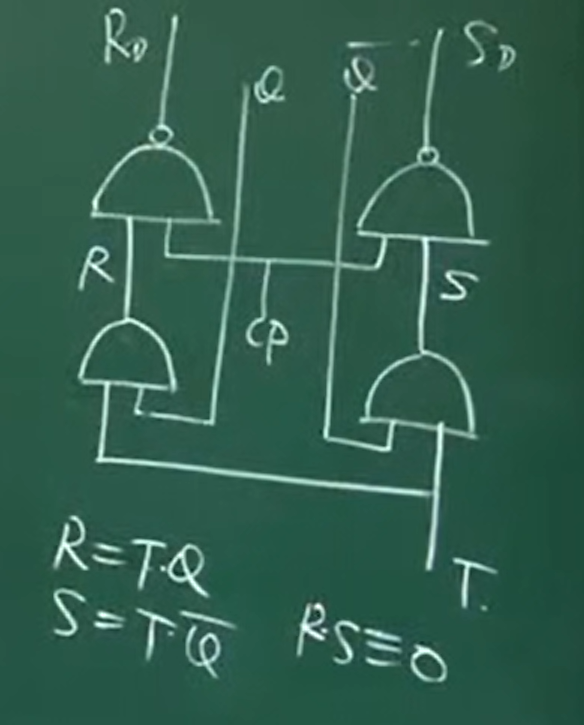 R_D Q Q̅ S_D
R S
CP
T.
R=T·Q
S=T·Q̅ R·S≡0